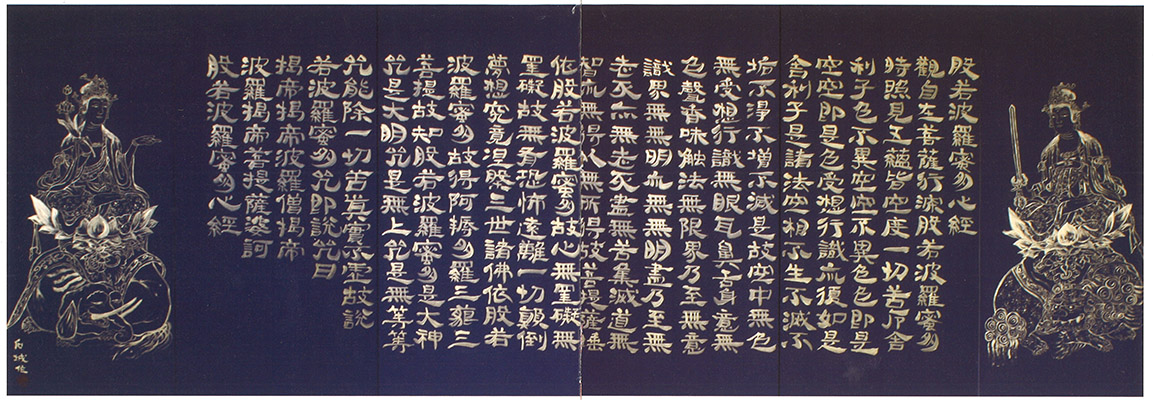 般若波羅蜜多心經
觀自在菩薩行深般若波羅蜜多
時照見五蘊皆空度一切苦厄舍
利子色不異空空不異色色即是
空空即是色受想行識亦復如是
舍利子是諸法空相不生不滅不
垢不淨不增不減是故空中無色
無受想行識無眼耳鼻舌身意無
色聲香味触法無眼界乃至無意
識界無無明亦無無明盡乃至無
老死亦無老死盡無苦集滅道無
智亦無得以無所得故菩提薩埵
依般若波羅蜜多故心無罣礙無
罣礙故無有恐怖遠離一切顛倒
夢想究竟涅槃三世諸佛依般若
波羅蜜多故得阿耨多羅三藐三
菩提故知般若波羅蜜多是大神
咒是大明咒是無上咒是無等等
咒能除一切苦眞實不虛故說
若波羅蜜多咒即說咒曰
揭帝揭帝波羅僧揭帝
波羅揭帝菩提薩婆訶
般若波羅蜜多心經